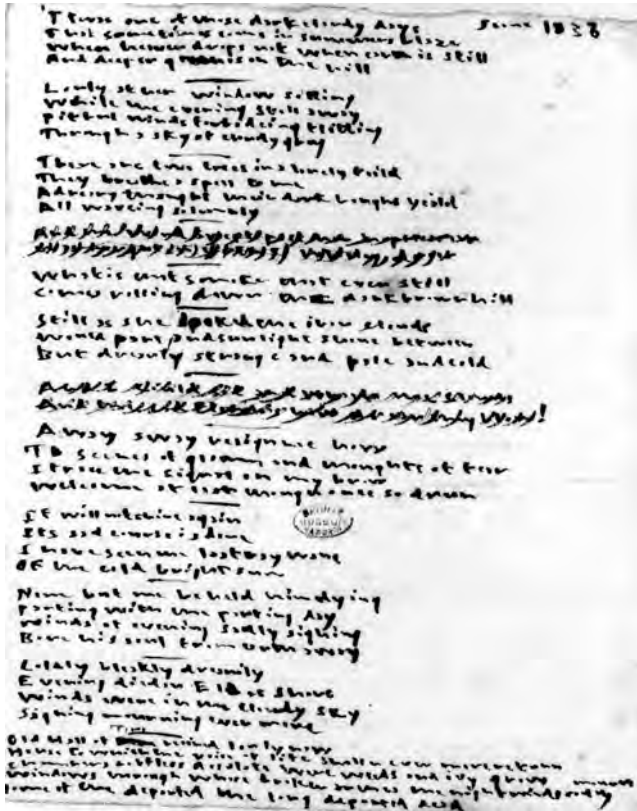 'T was one of those dark cloudy days
June 1838
That sometimes come in summers blaze
When heaven drops not when earth is still
And deeper green is on the hill
Lonly at her window sitting
While the evening steals away
Fitful winds forboding flitting
Through a sky of cloudy gray
There are two trees in a lonely field
They breathe a spell to me
A dreary thought their dark boughs yeild
All waveing solemnly
What is that smoke that ever still
Comes rolling down the dark brown hill
Still as she spoke the iron clouds
Would part and sunlight shone between
But drearily strange and pale and cold
Away away resign me now
To scenes of gloom and thoughts of fear
I trace the signet on my brow
Welcome at last though once so drear
It will not shine again
Its sad course is done
I have seen the last ray wane
Of the cold bright sun
None but me beheld him dying
Parting with the parting day
Winds of evening sadly sighing
Bore his soul from earth away
Coldly bleakly drearily
Evening died on Elbë's shore
Winds were in the cloudy sky
Sighing mourning ever more
Old Hall of Time ruined lonly now
House to which the voice of life shall never more return
Chambers roofless desolate where weeds and ivy grow
Windows through whose broken arches the night winds sadly mourn
Home of the departed the long departed dead